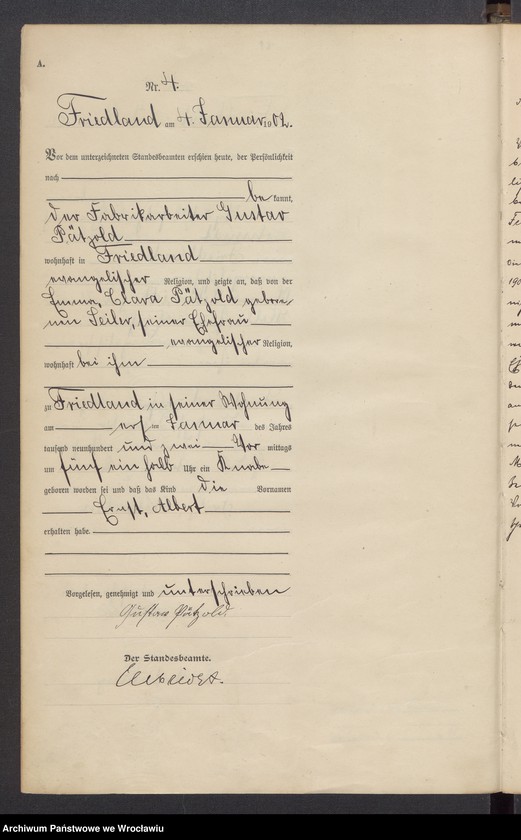 A.
Nr. 4.
Friedland am 4. Januar 1902.
Vor dem unterzeichneten Standesbeamten erschien heute, der Persönlichkeit
nach
be kannt,
der Fabrikarbeiter Gustav
Pätzold
wohnhaft in Friedland
evangelischer Religion, und zeigte an, daß von der
Emma, Clara Pätzold gebore-
nen Seiler, seiner Ehefrau
evangelischer Religion,
wohnhaft bei ihm
zu Friedland in seiner Wohnung
am ersten Januar des Jahres
tausend neunhundert und zwei Vor mittags
um fünf ein halb Uhr ein Knabe
geboren worden sei und daß das Kind die Vornamen
Ernst, Albert
erhalten habe.
Vorgelesen, genehmigt und unterschrieben
Gustav Pätzold.
Der Standesbeamte.
Archiwum Państwowe we Wrocławiu